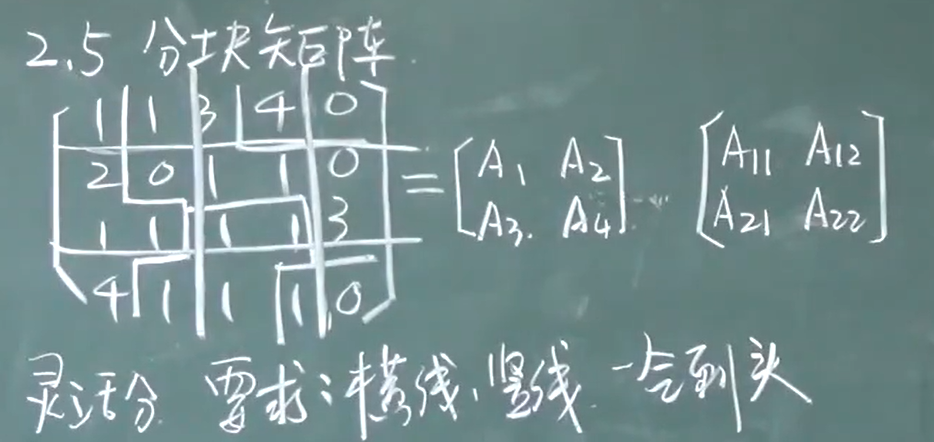 2.5 分块矩阵
1 1 3 4 0
2 0 1 1 0
1 1 1 1 3
4 1 1 1 0
= [A₁ A₂ A₃. A₄] ... [A₁₁ A₁₂ A₂₁ A₂₂]
灵活分. 要求:横线、竖线 一气到头